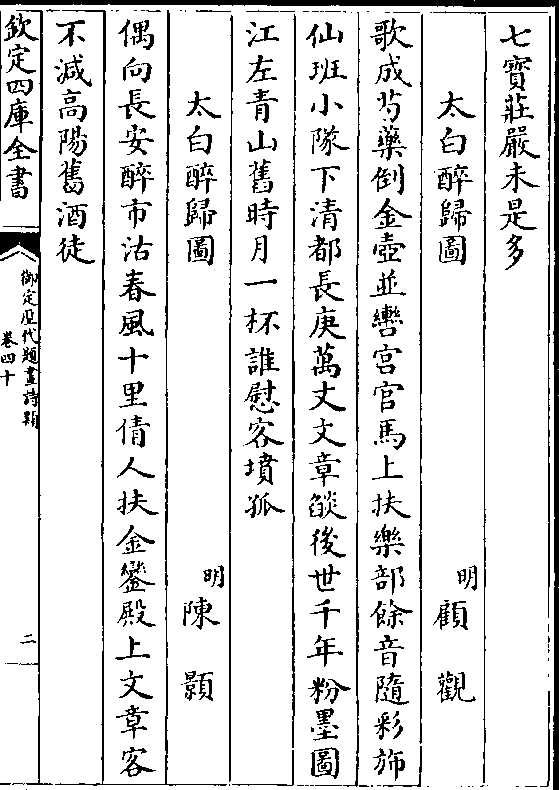 七寳莊嚴未是多
太白醉歸圖
明 顧觀
歌成芍藥倒金壺並轡宫官馬上扶樂部餘音隨彩斾
仙班小隊下清都長庚萬丈文章燄後世千年粉墨圖
江左青山舊時月一杯誰慰客墳孤
太白醉歸圖
明 陳顥
偶向長安醉市沽春風十里倩人扶金鑾殿上文章客
不減高陽舊酒徒
欽定四庫全書
御定歷代題畫詩類
卷四十
二